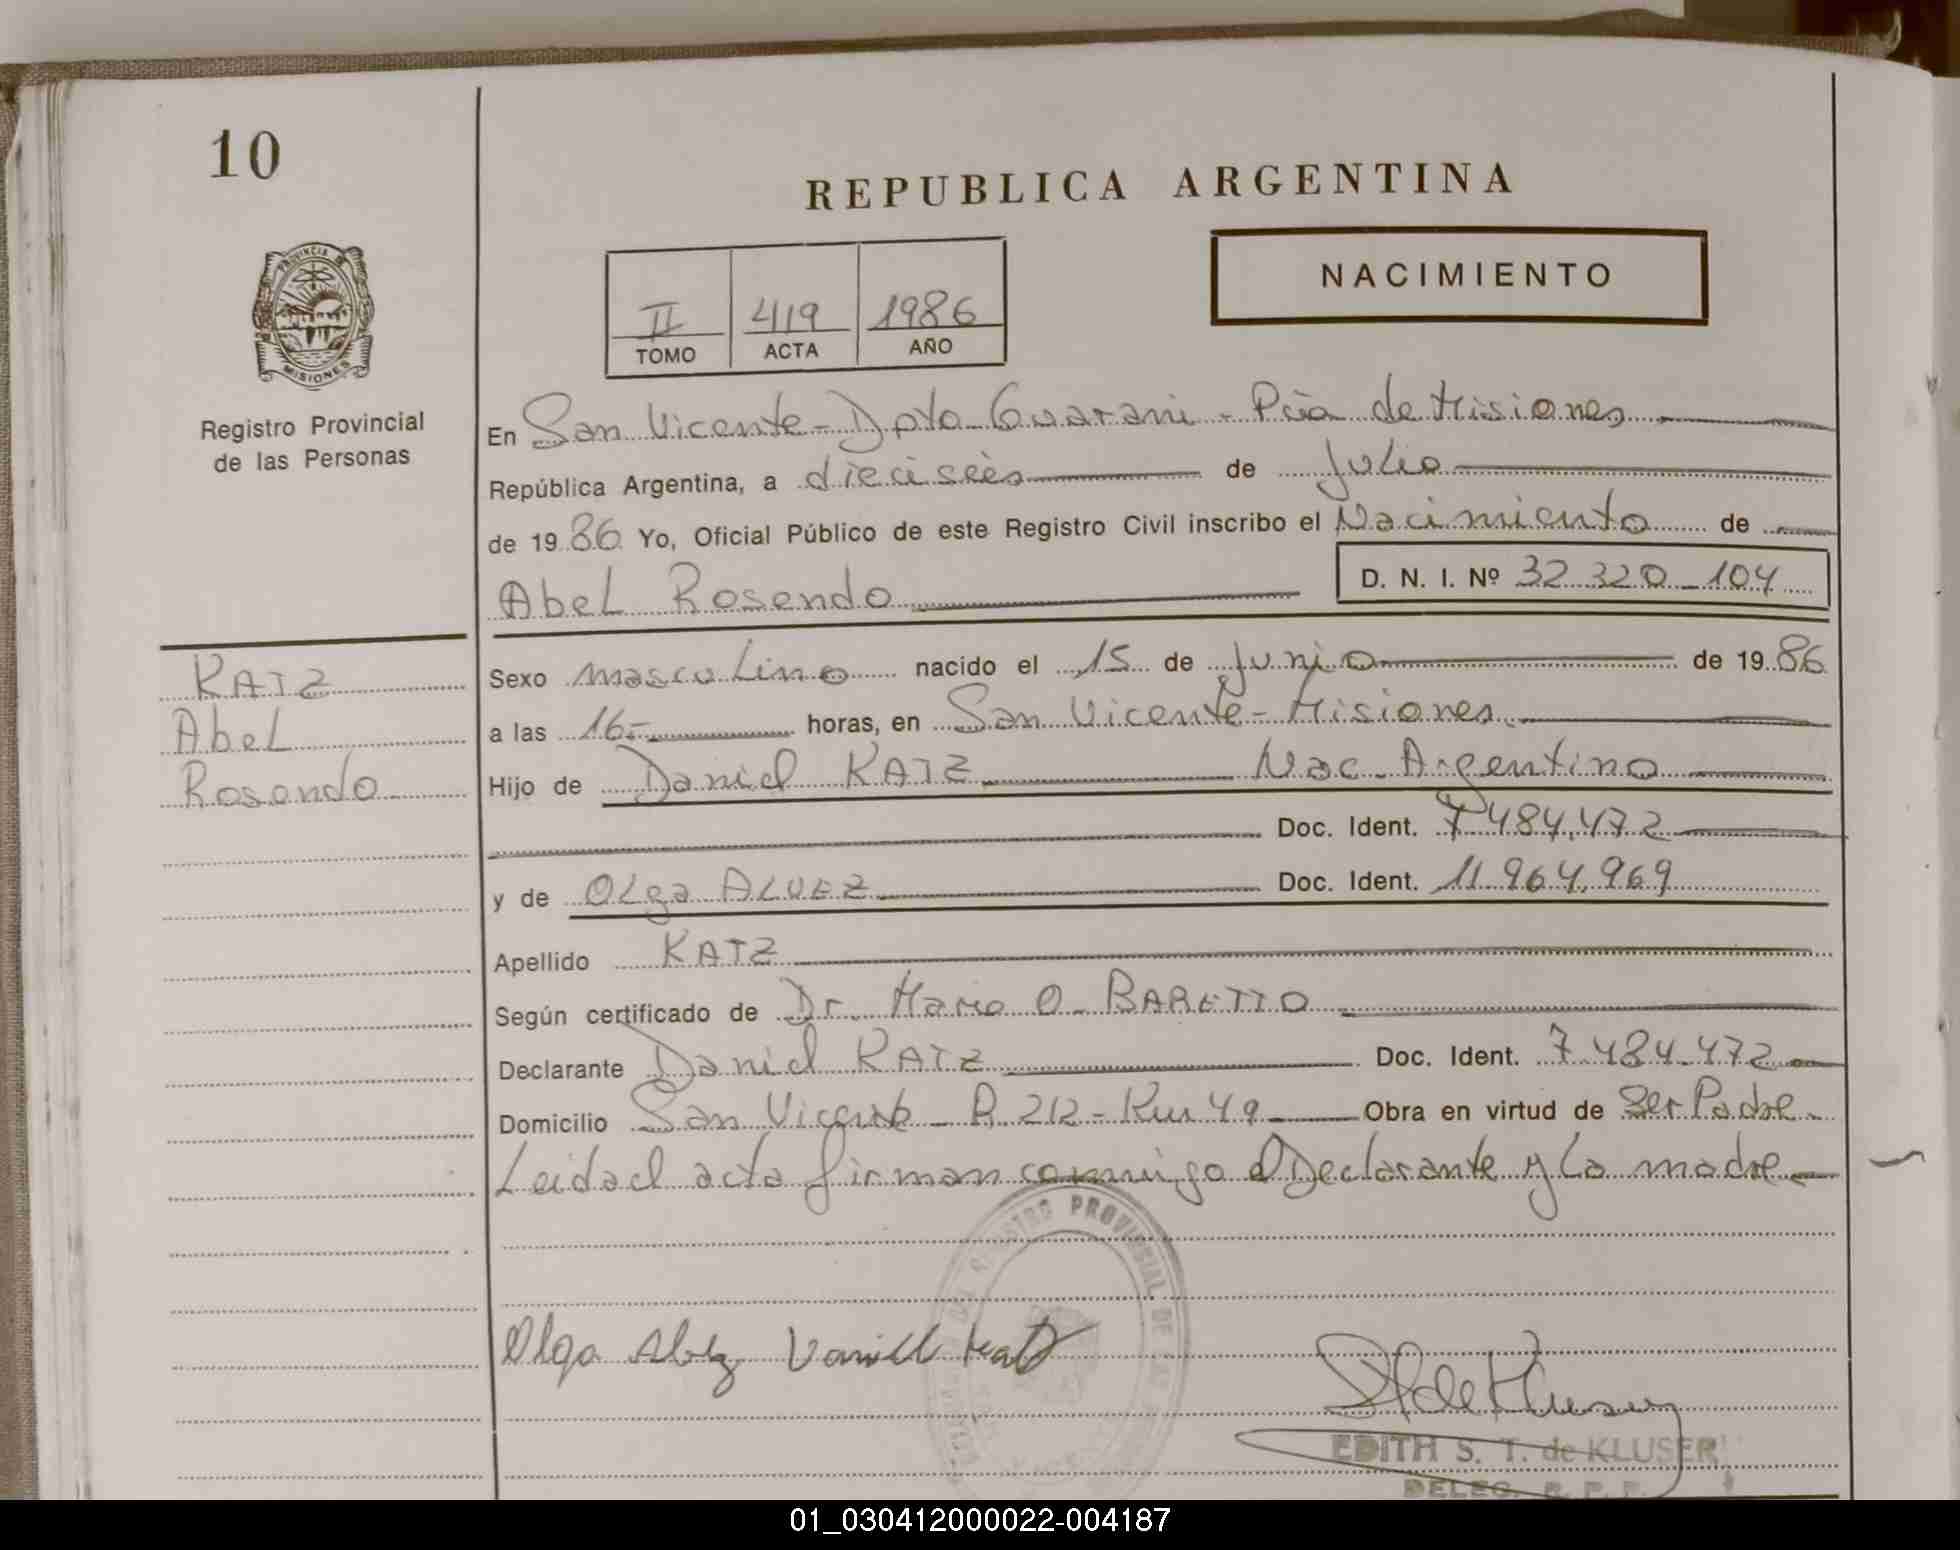 10
REPUBLICA ARGENTINA
NACIMIENTO
PROVINCIA DE
MISIONES
II 419 1986
TOMO ACTA AÑO
Registro Provincial
de las Personas
En San Vicente - Dpto Guarani - Pcia de Misiones
República Argentina, a dieciseis de Julio
de 1986 Yo, Oficial Público de este Registro Civil inscribo el Nacimiento de
Abel Rosendo D. N. I. Nº 32 320 104
KATZ
Abel
Rosendo
Sexo masculino nacido el 15 de Junio de 1986
a las 16- horas, en San Vicente - Misiones
Hijo de Daniel KATZ Nac. Argentino
Doc. Ident. 7 484.472
y de Olga ALVEZ Doc. Ident. 11 964.969
Apellido KATZ
Según certificado de Dr. Mario O. BARETTO
Declarante Daniel KATZ Doc. Ident. 7 484.472
Domicilio San Vicente - R 212 - Km 49 Obra en virtud de Ser Padre
Leida el acta firman conmigo el Declarante y la madre
REGISTRO PROVINCIAL DE LAS
Olga Daniel
EDITH S. T. de KLUSER
DELEG. R. P. P.
01_030412000022-004187